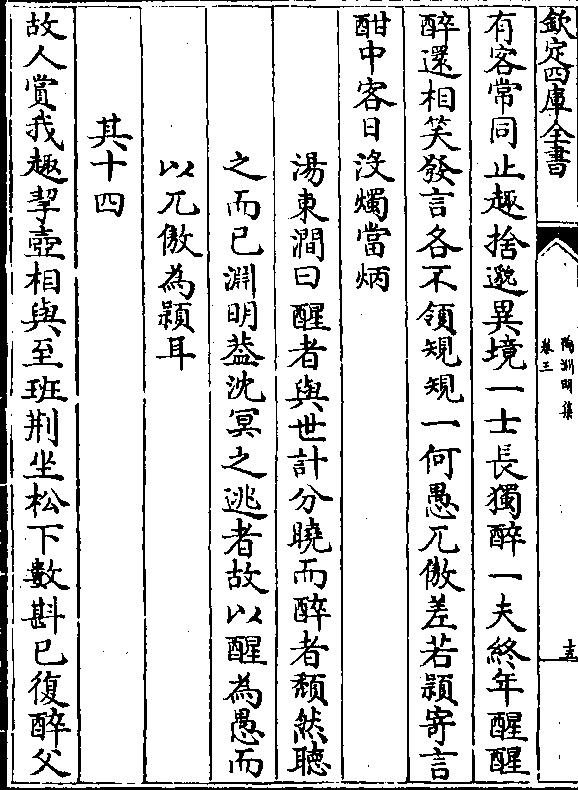 欽定四庫全書
陶淵明集
卷三
有客常同止趣捨邈異境一士長獨醉一夫終年醒醒
醉還相笑發言各不領規規一何愚兀傲差若頴寄言
酣中客日沒燭當炳
湯東澗曰醒者與世計分曉而醉者頽然聽
之而已淵明葢沈冥之逃者故以醒為愚而
以兀傲為頴耳
其十四
故人賞我趣挈壺相與至班荆坐松下數斟已復醉父